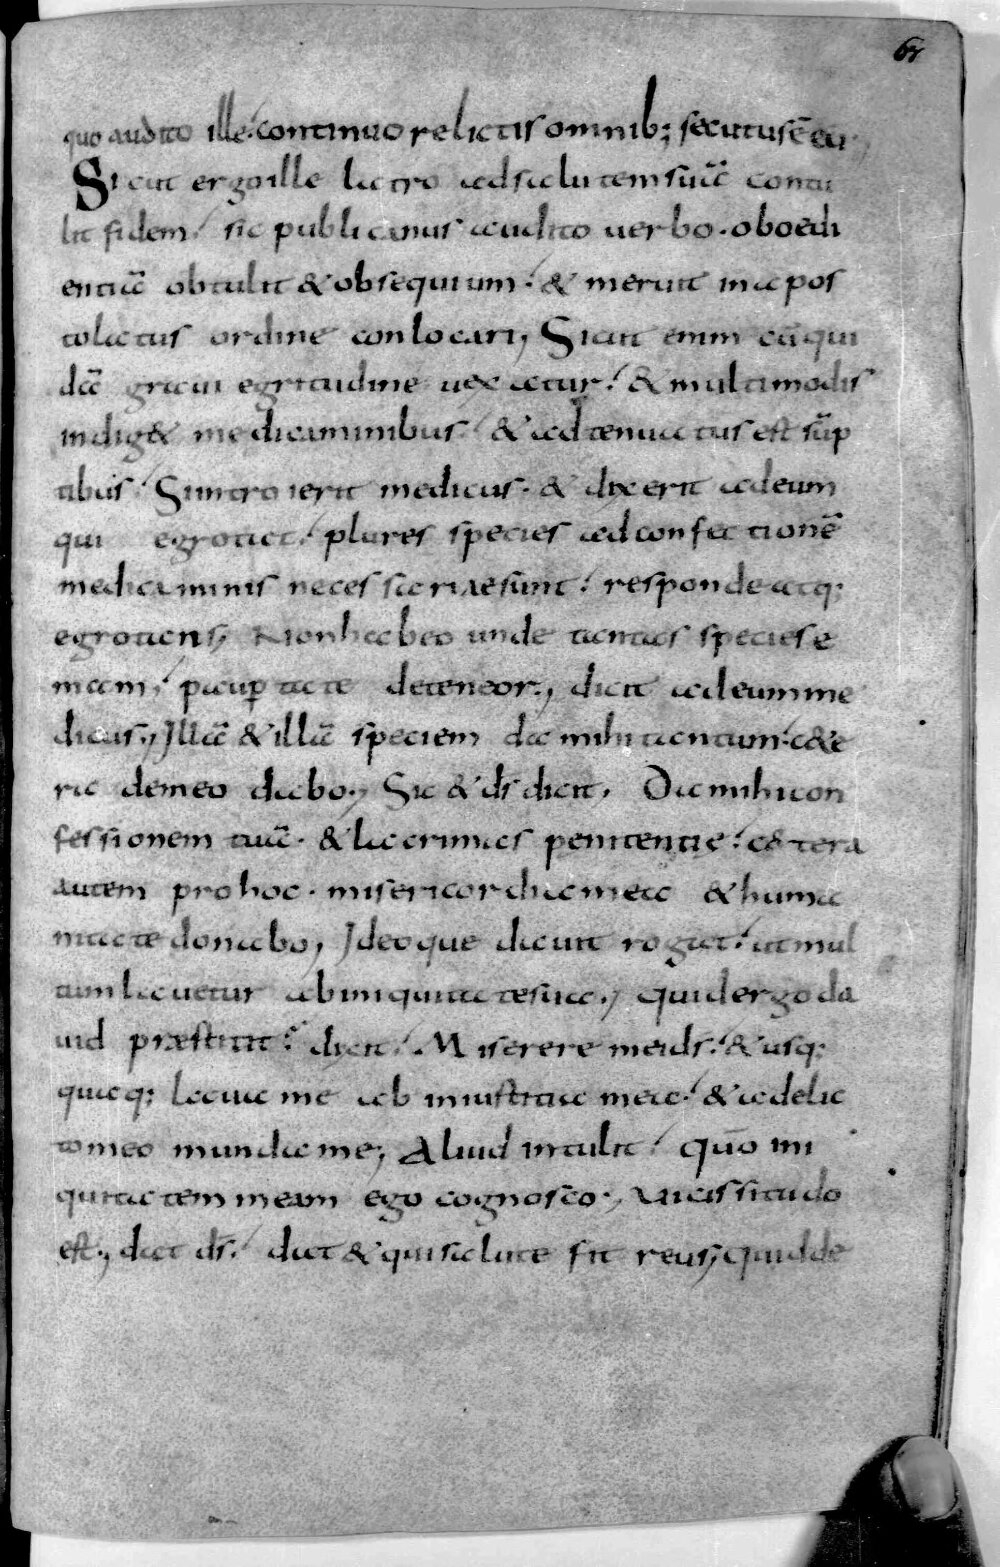 67
quo audito ille continuo relictis omnib; secutus ē eū;
Sicut ergo ille latro ad salutem suā contu
lit fidem, sic publicanus audito uerbo. oboedi
entiā obtulit & obsequium. & meruit in apos
tolatus ordine conlocari; Sicut enim cū qui
dā graui egritudine uexatur. & multimodis
indig& medicaminibus, & adtenuatus est sūp
tibus, Si introierit medicus. & dixerit ad eum
qui egrotat. plures species ad confectionē
medicaminis necessariae sunt. respondeatq;
egrotans; Non habeo unde tantas species e
mam, paup̄tate deteneor; dicit ad eum me
dicus; Illā & illā speciem da mihi tantum. c&e
ra de meo dabo; Sic & d̄s dicit, Da mihi con
fessionem tuā. & lacrimas penitentię. c&tera
autem pro hoc. misericordia mea & huma
nitate donabo; Ideoque dauit rogat. ut mul
tum lauetur ab iniquitate sua; quid ergo da
uid praestitit? dicit. Miserere mei d̄s. & usq;
quaq; laua me ab iniustitia mea. & a delic
to meo munda me; Aliud intulit. quō ini
quitatem meam ego cognosco; Uicissitudo
est; dat d̄s. dat & qui salute fit reus; quid de